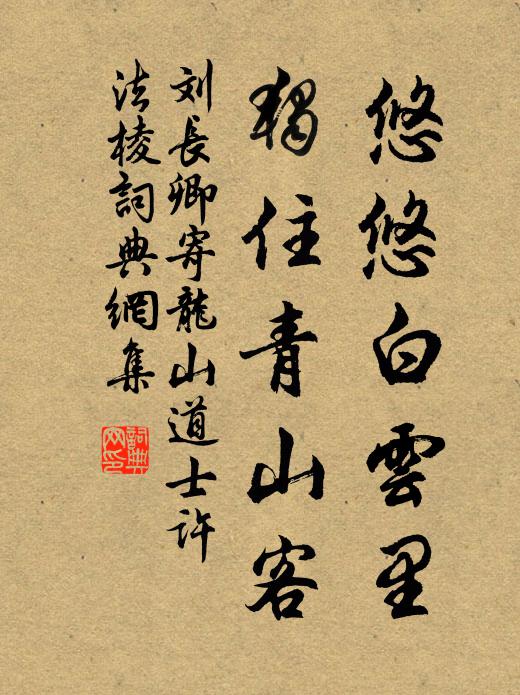 悠悠白雲里
獨住青山客
刘長卿寄龍山道士許
法棱詞典網集
詞典
网印